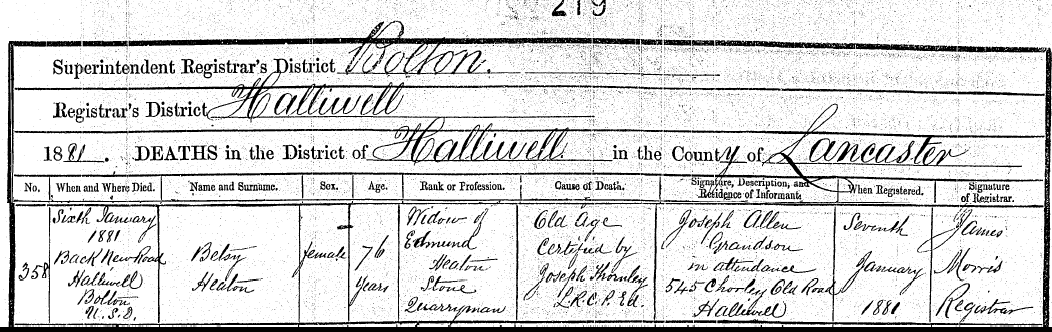 219
Superintendent Registrar's District Bolton.
Registrar's District Halliwell
1881. DEATHS in the District of Halliwell in the County of Lancaster
No. When and Where Died. Name and Surname. Sex. Age. Rank or Profession. Cause of Death. Signature, Description, and Residence of Informant. When Registered. Signature of Registrar.
358
Sixth January
1881
Back New Road
Halliwell
Bolton
U.S.D.
Betsy
Heaton
female
76
years
Widow of
Edmund
Heaton
Stone
Quarryman
Old Age
Certified by
Joseph Thornley
L.R.C.P. Ed.
Joseph Allen
Grandson
in attendance
545 Chorley Old Road
Halliwell
Seventh
January
1881
James
Morris
Registrar